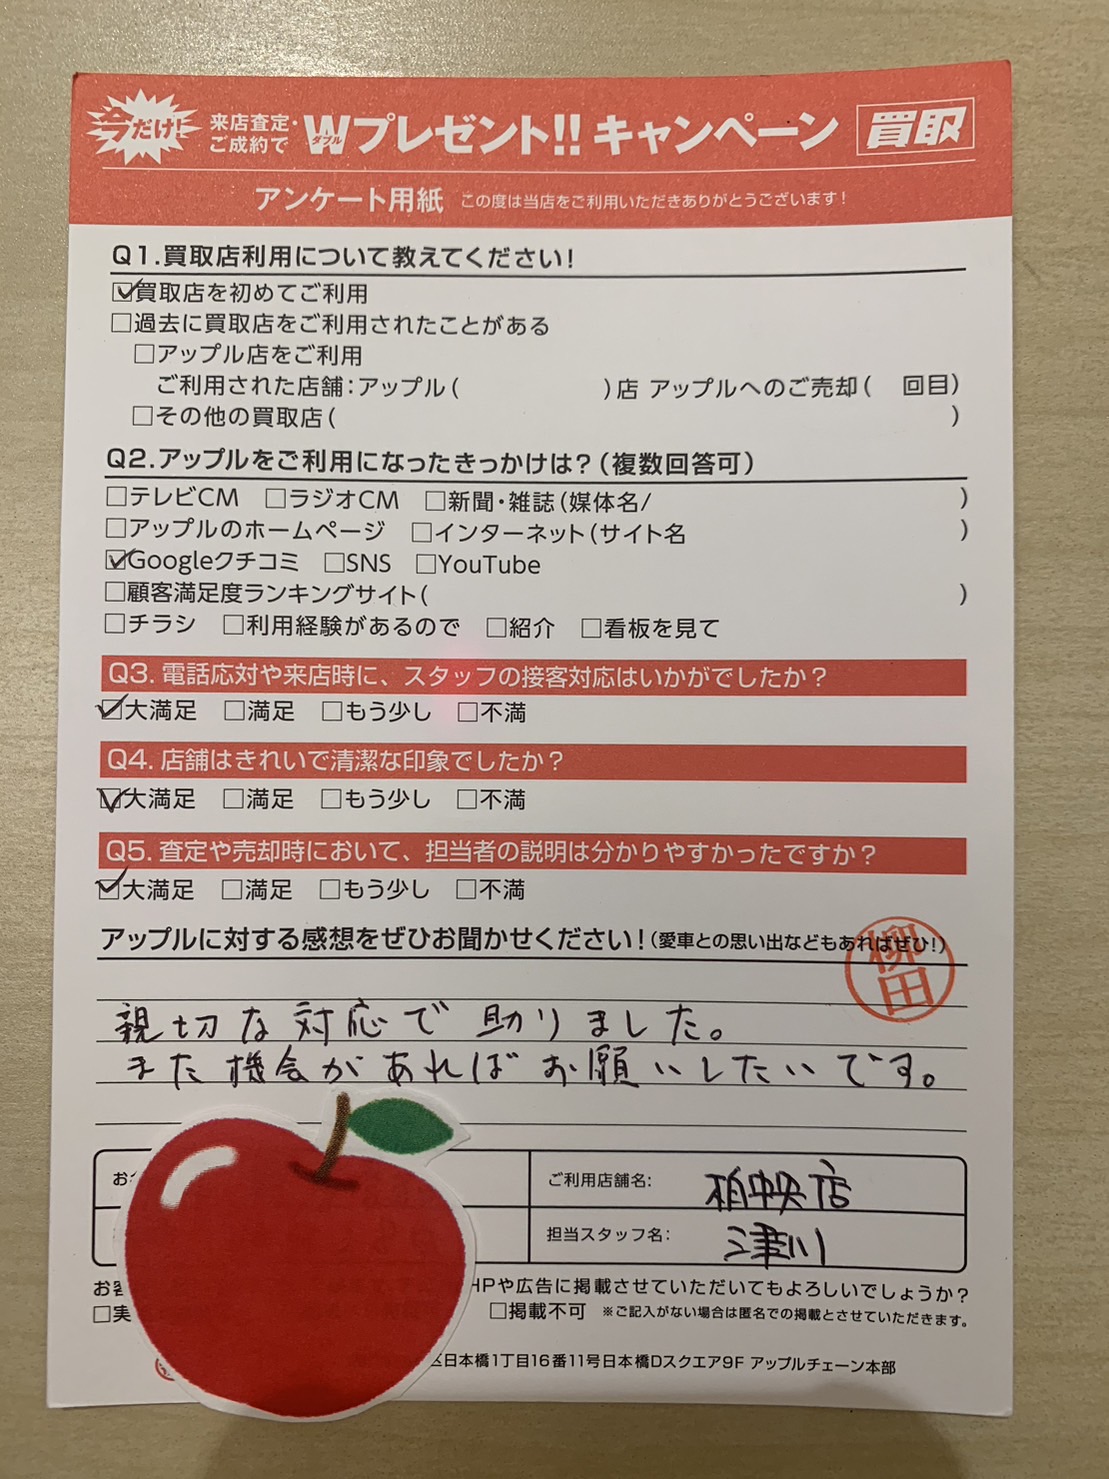 今だけ! 来店査定・ご成約で Wダブルプレゼント!! キャンペーン 買取
アンケート用紙 この度は当店をご利用いただきありがとうございます!
Q1.買取店利用について教えてください!
☑買取店を初めてご利用
□過去に買取店をご利用されたことがある
□アップル店をご利用
ご利用された店舗:アップル( )店 アップルへのご売却( 回目)
□その他の買取店( )
Q2.アップルをご利用になったきっかけは?(複数回答可)
□テレビCM □ラジオCM □新聞・雑誌(媒体名/ )
□アップルのホームページ □インターネット(サイト名 )
☑Googleクチコミ □SNS □YouTube
□顧客満足度ランキングサイト( )
□チラシ □利用経験があるので □紹介 □看板を見て
Q3. 電話応対や来店時に、スタッフの接客対応はいかがでしたか?
☑大満足 □満足 □もう少し □不満
Q4. 店舗はきれいで清潔な印象でしたか?
☑大満足 □満足 □もう少し □不満
Q5. 査定や売却時において、担当者の説明は分かりやすかったですか?
☑大満足 □満足 □もう少し □不満
アップルに対する感想をぜひお聞かせください!(愛車との思い出などもあればぜひ!)
柳田
親切な対応で助りました。
また機会があればお願いしたいです。
ご利用店舗名: 柏中央店
担当スタッフ名: 津川
お客 HPや広告に掲載させていただいてもよろしいでしょうか?
□実 □掲載不可 ※ご記入がない場合は匿名での掲載とさせていただきます。
区日本橋1丁目16番11号日本橋Dスクエア9F アップルチェーン本部